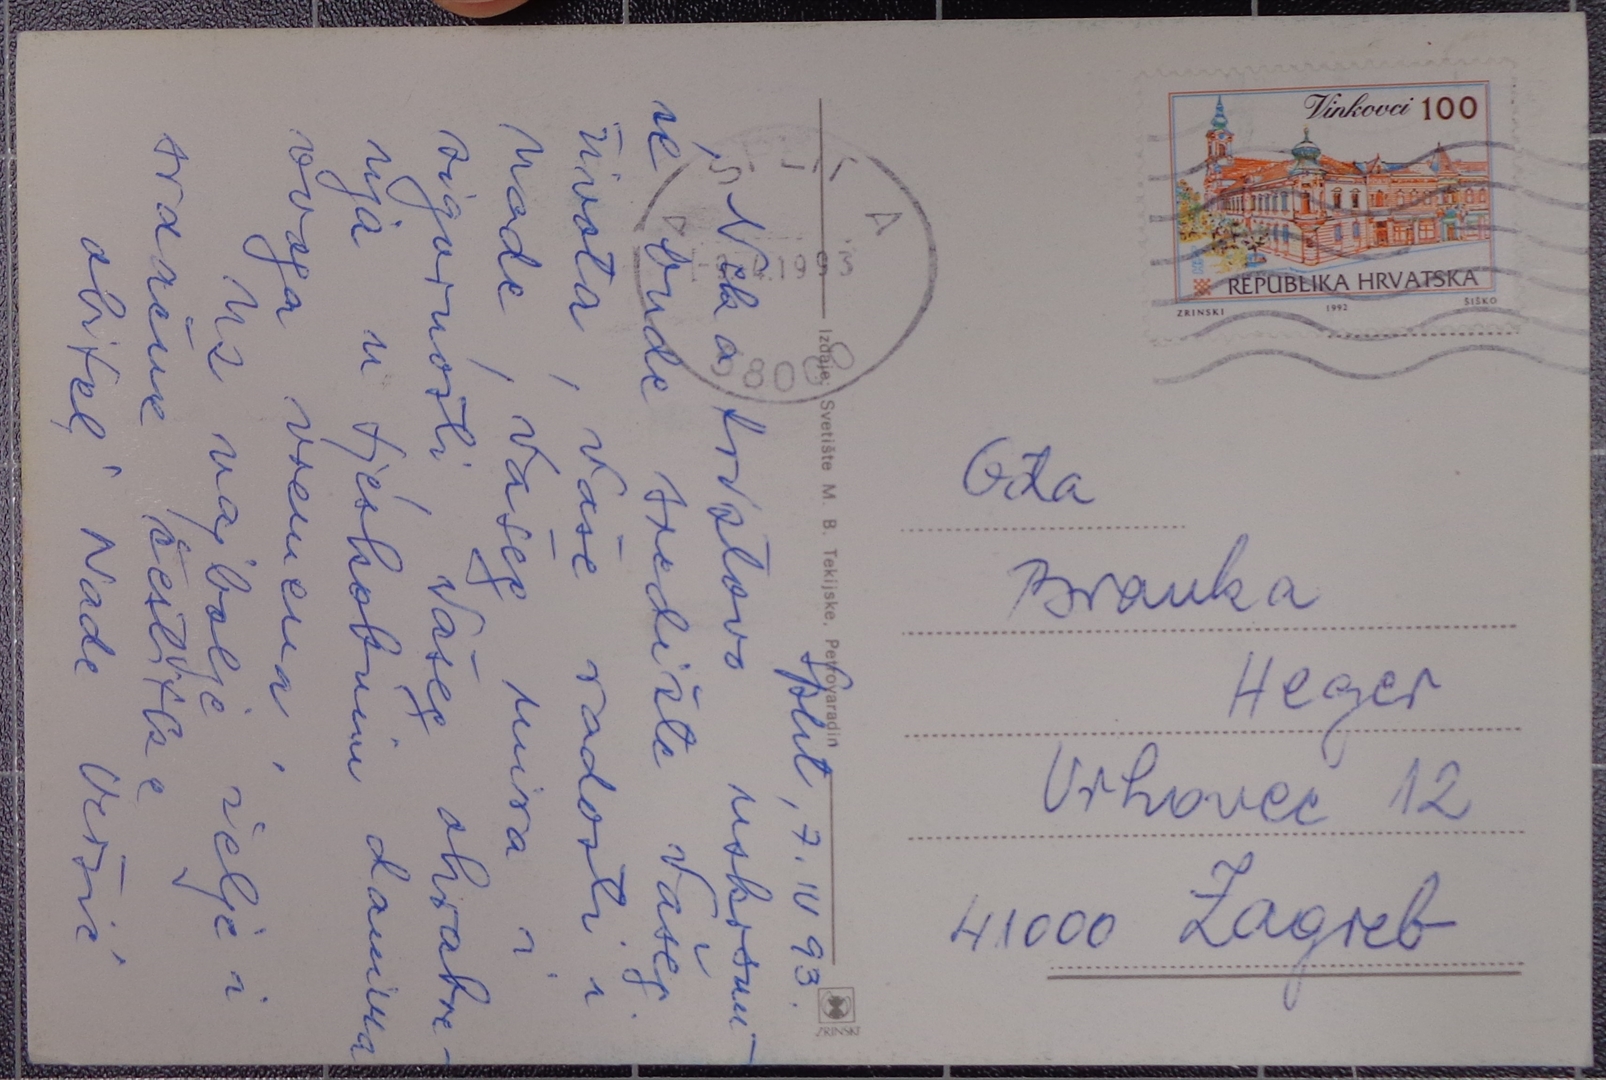 Split, 7. IV 93.
„Neka Kristovo uskrsnu-
će bude središte Vašeg
života, Vaše radosti i
nade, Vašeg mira i
sigurnosti Vašeg ohrabre-
nja u tjeskobnim danima
ovoga vremena”,
Uz najbolje želje i
srdačne čestitke
obitelj Nade
Izdaje: Svetište M. B. Tekijske, Petrovaradin
ZRINSKI
SPLIT
A
1993
5800
Vinkovci 100
REPUBLIKA HRVATSKA
ZRINSKI 1992 ŠIŠKO
Gđa
Branka
Heger
Vrhovec 12
41000 Zagreb